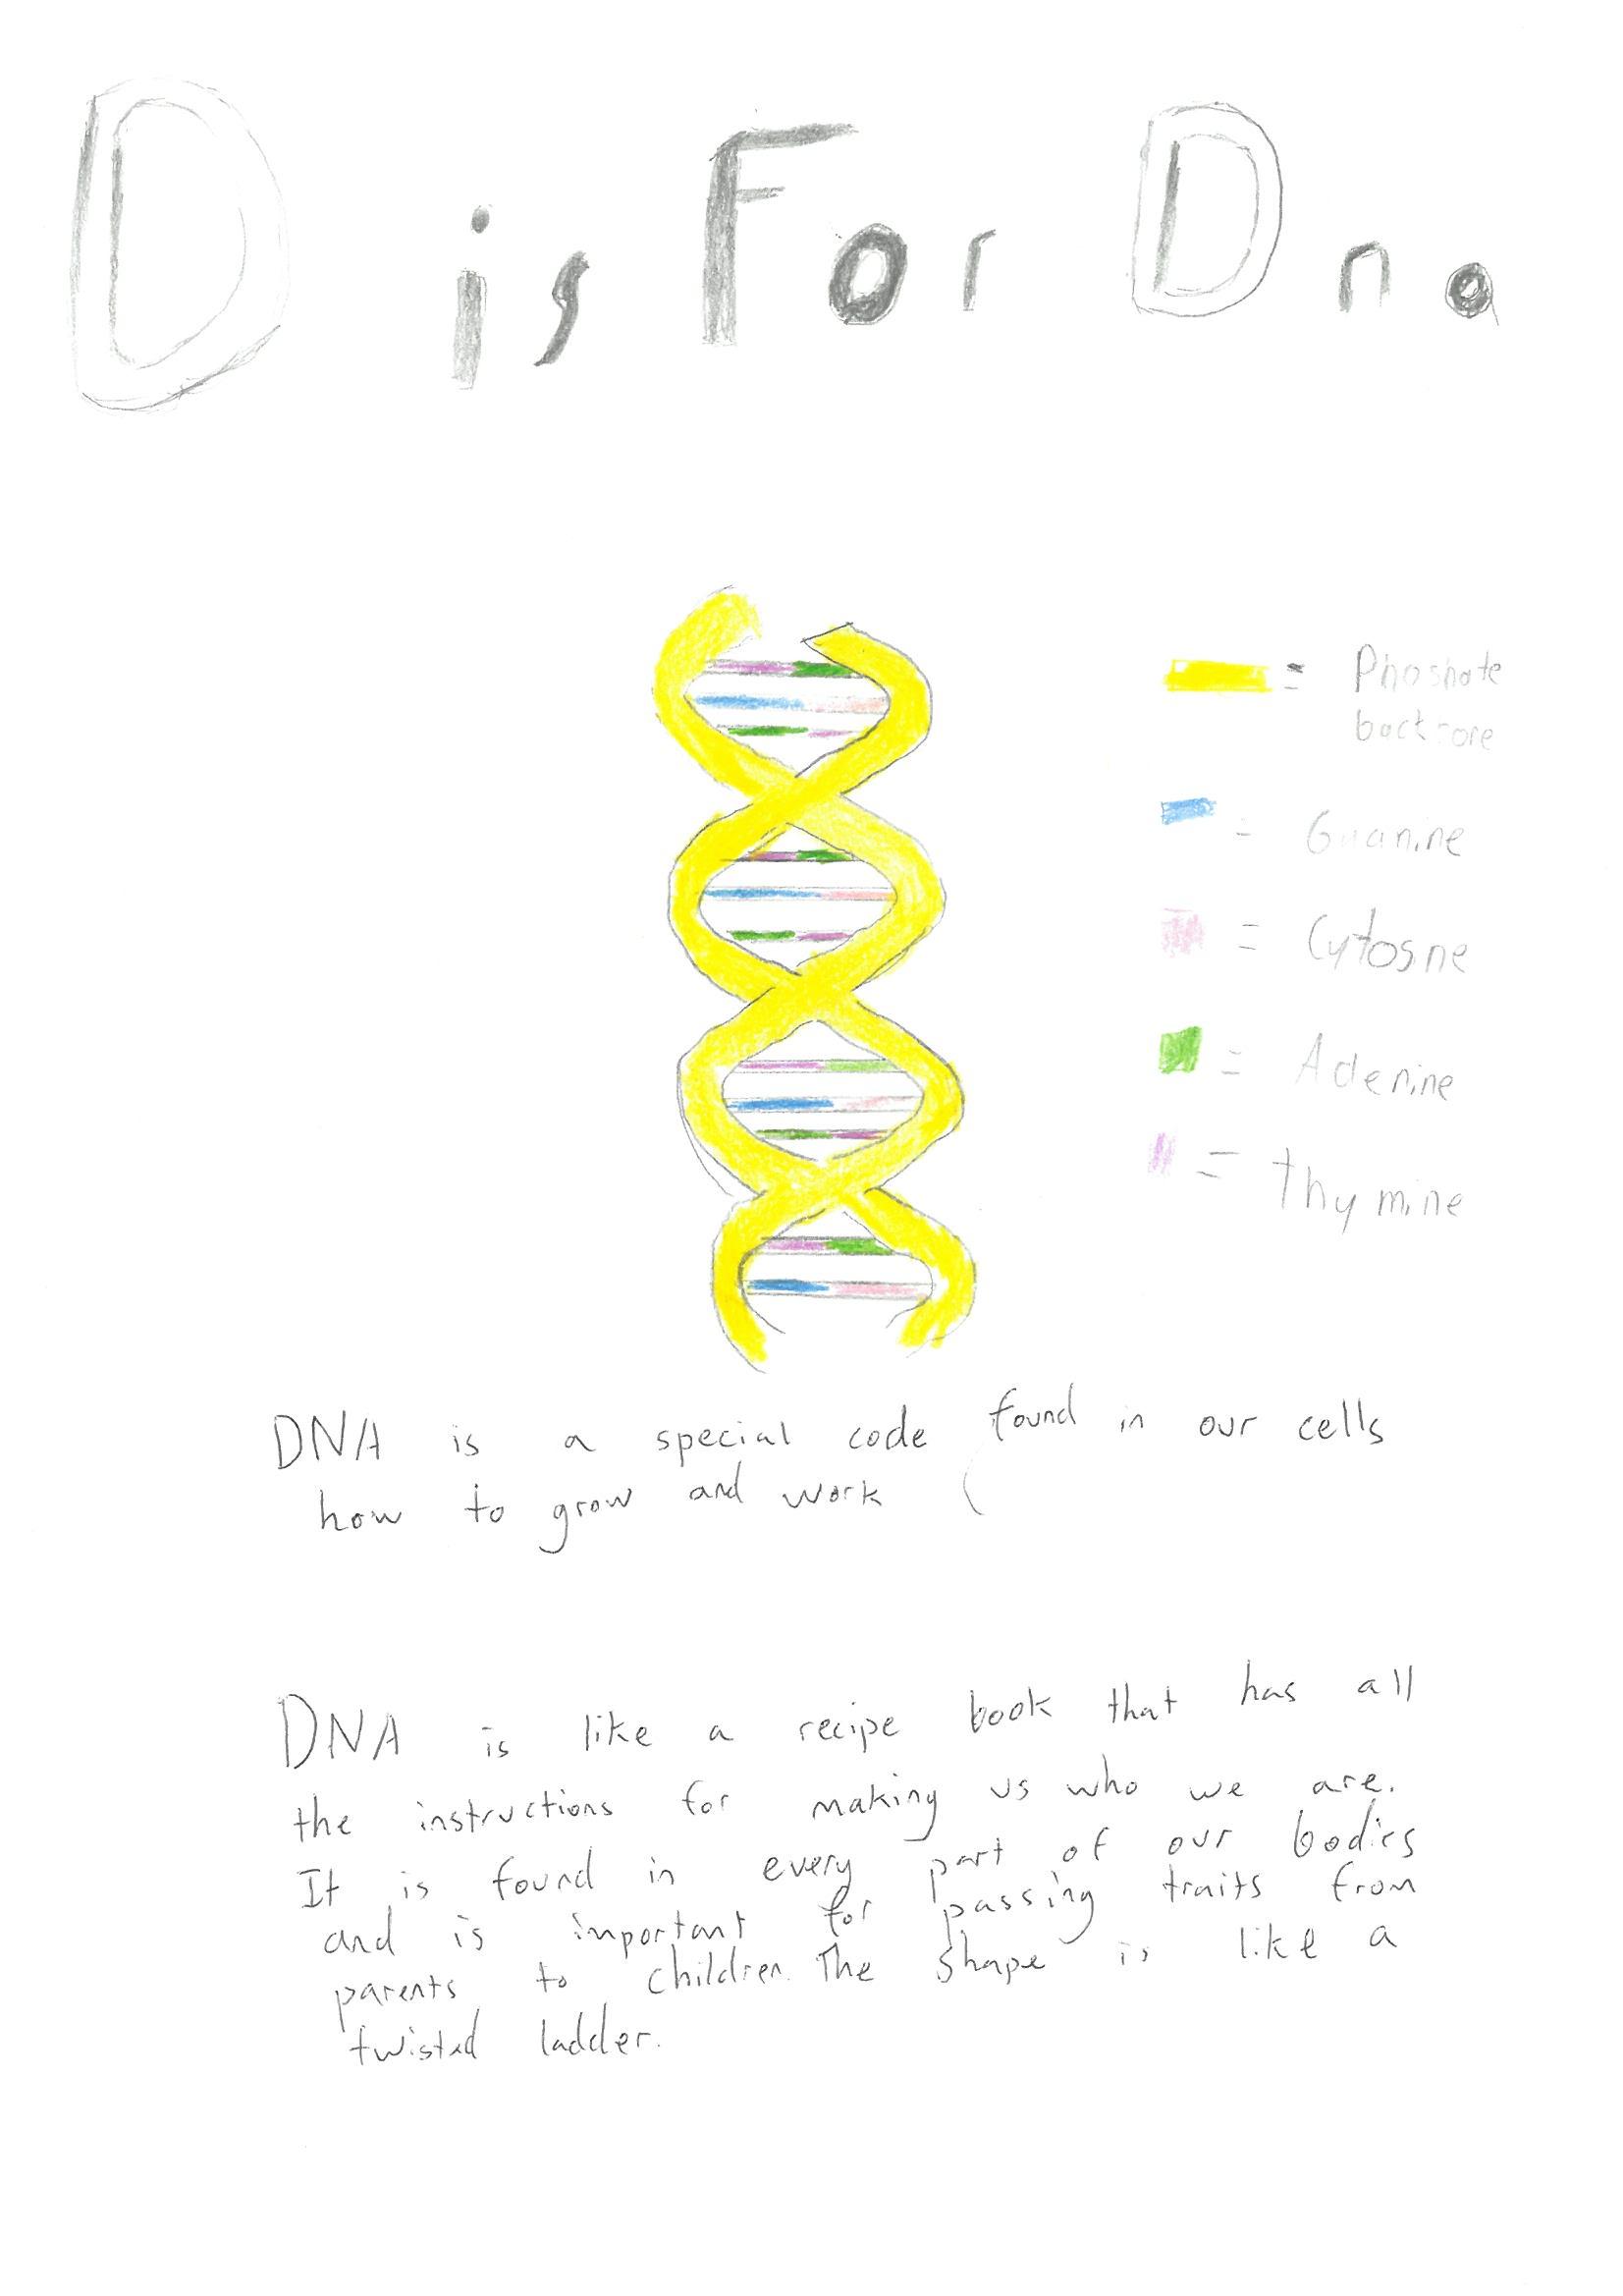 D is For Dna
= Phoshate
backbone
= Guanine
= Cytosne
= Adenine
= thymine
DNA is a special code found in our cells
how to grow and work
DNA is like a recipe book that has all
the instructions for making us who we are.
It is found in every part of our bodies
and is important for passing traits from
parents to children. The shape is like a
twisted ladder.